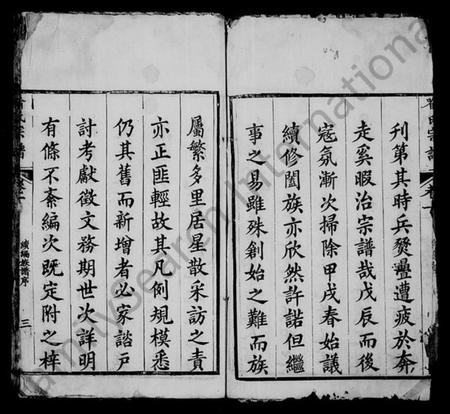 刊第其時兵燹疊遭疲於奔
走奚暇治宗譜哉戊辰而後
寇氛漸次掃除甲戌春始議
續修闔族亦欣然許諾但繼
事之易雖殊創始之難而族
屬繁多里居星散采訪之責
亦正匪輕故其凡例規模悉
仍其舊而新增者必家諮戶
討考獻徵文務期世次詳明
有條不紊編次既定附之梓
氏宗譜
續編族譜序
三
FamilySearch International